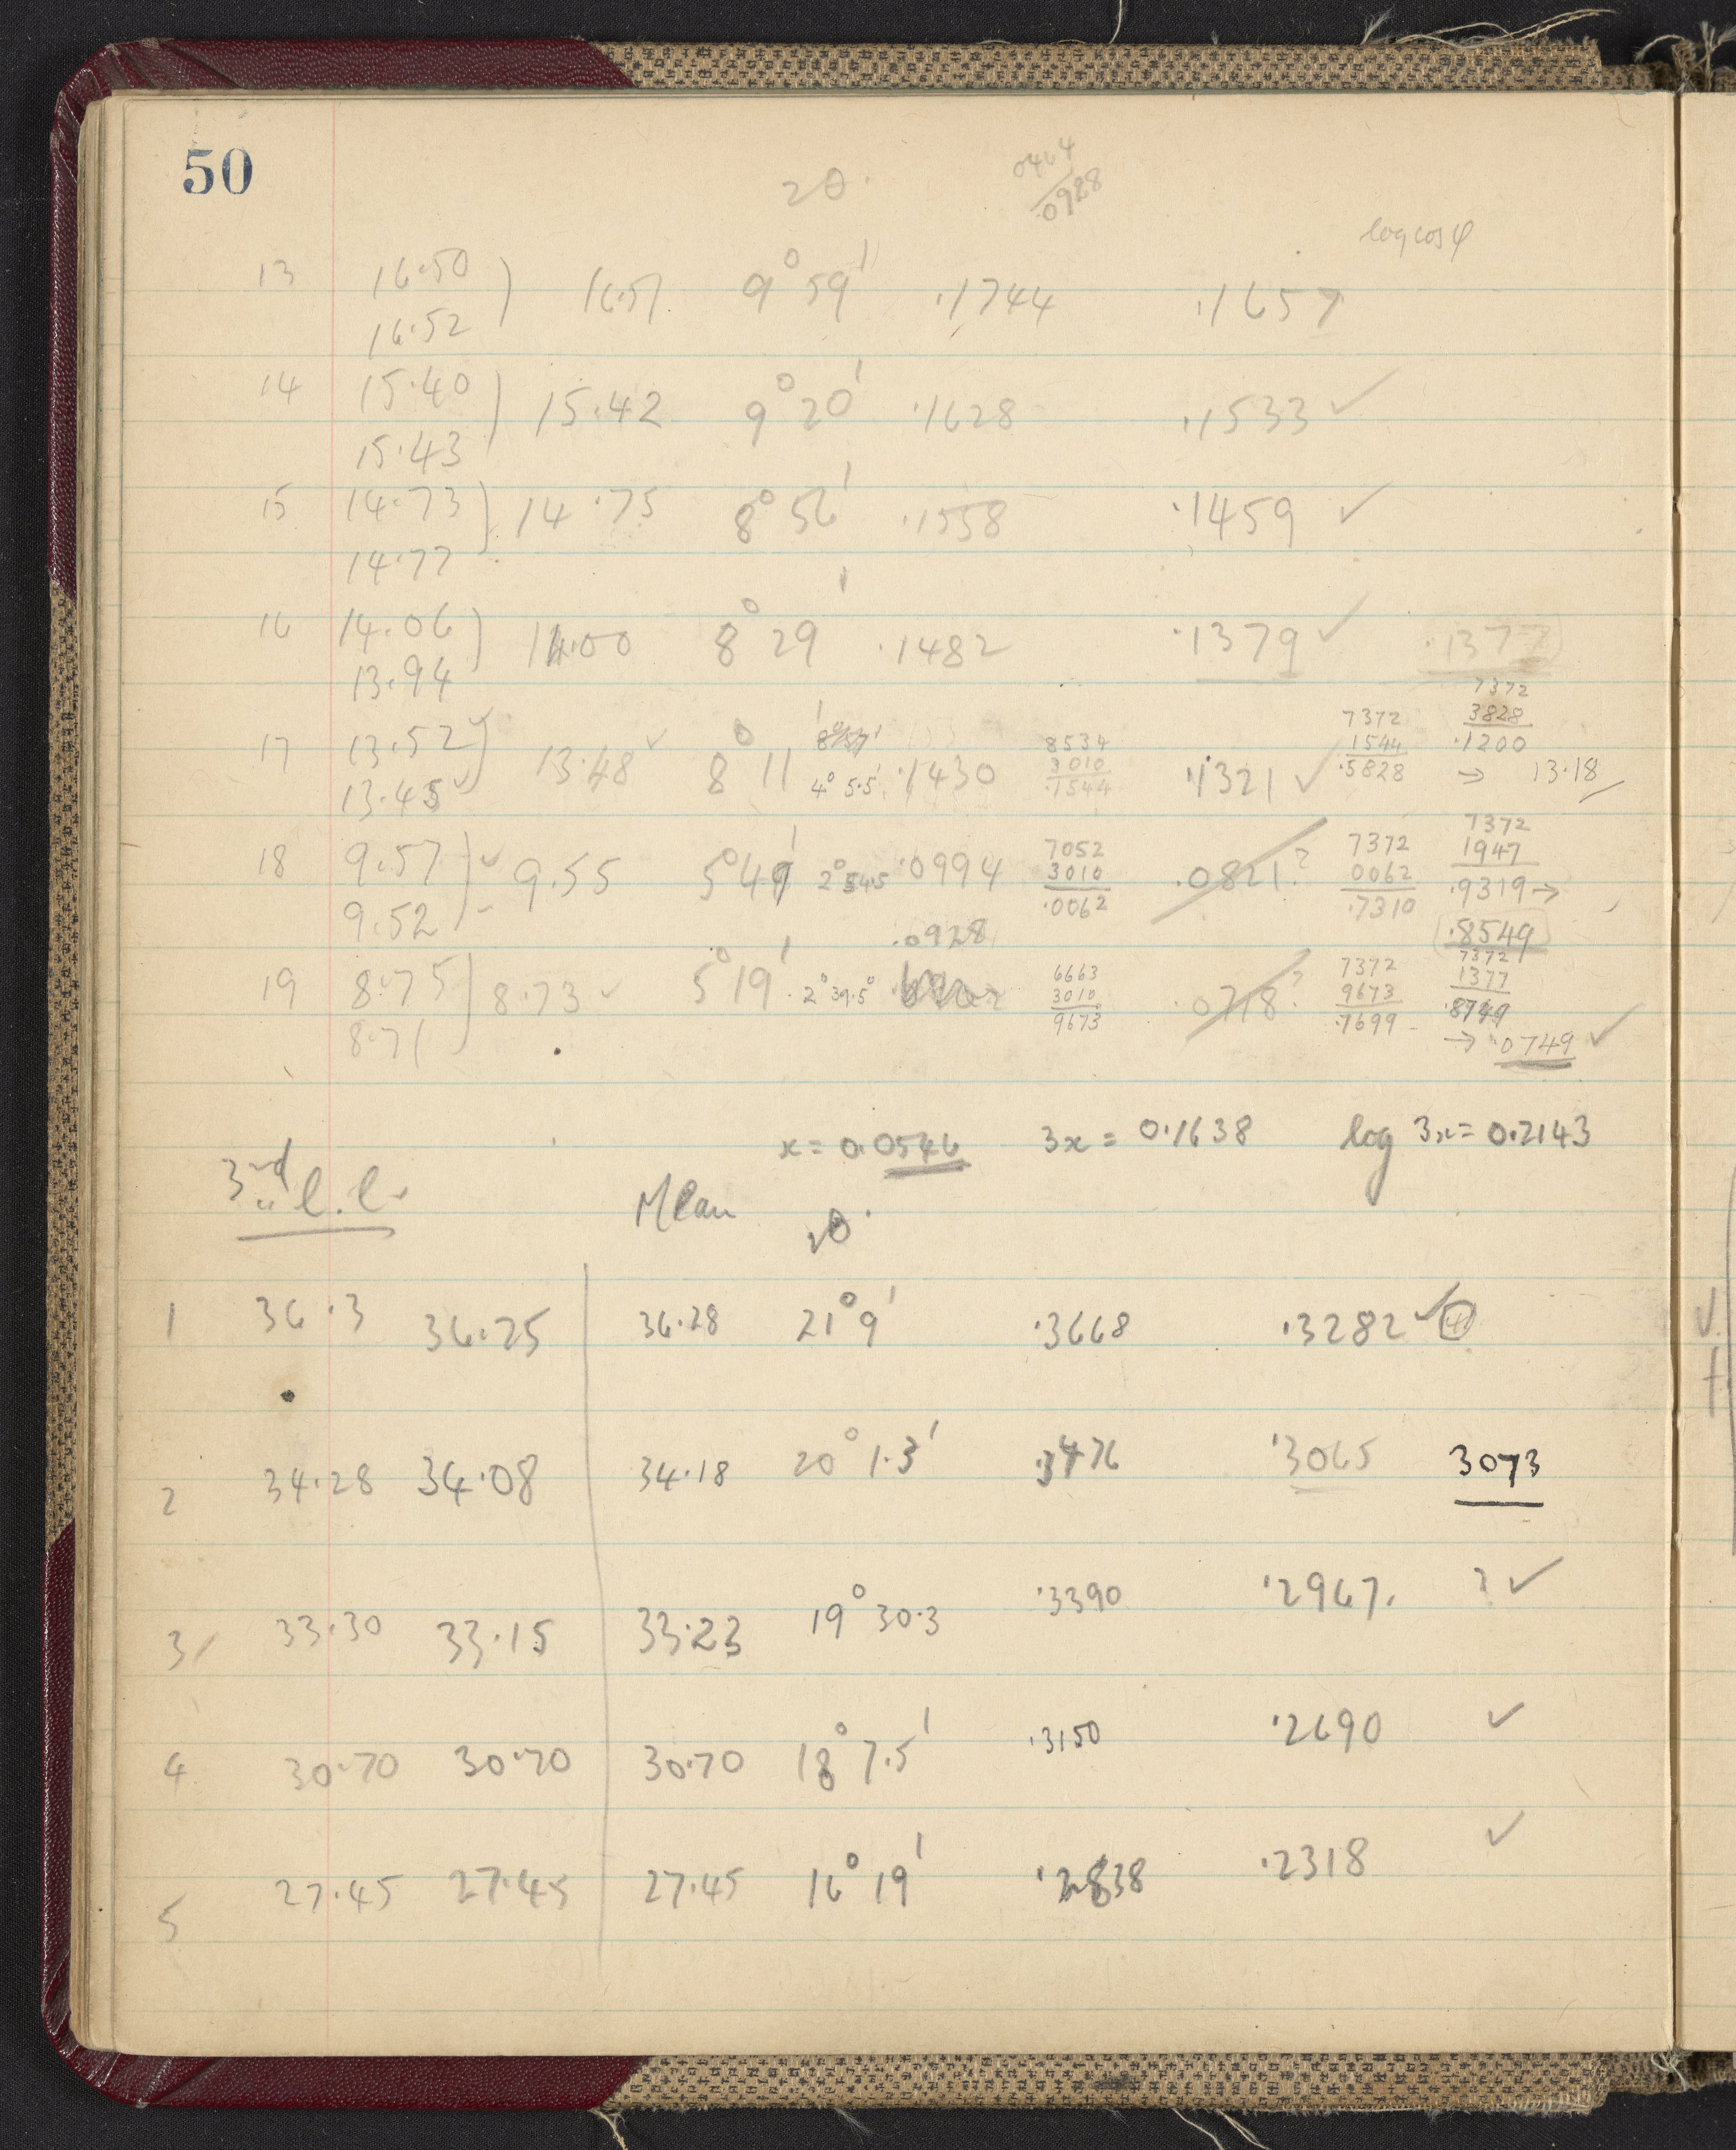 50
2θ.
0464
.0928
log cos φ
13 16.50 16.51 9° 59' .1744 .1657
16.52
14 15.40 15.42 9° 20' .1628 .1533 ✓
15.43
15 14.73 14.75 8° 56' .1558 .1459 ✓
14.77
16 14.06 14.00 8° 29' .1482 .1379 ✓ .1377
13.94
7372
8534 7372 3828
17 13.52 ✓ 3010 1544 .1200
13.48 ✓ 8° 11' 4° 5.5' .1430 .1544 .1321 ✓ .5828 → 13.18
13.45 ✓
7372
7052 7372 1947
18 9.57 ✓ 9.55 5° 49' 2° 54.5 .0994 3010 .0821? 0062 .9319 →
9.52 .0062 .7310
.0928 .8549
7372
6663 7372 1377
19 8.75 8.73 ✓ 5° 19' 2° 39.5° 3010 .0718? 9673 .8749
8.71 9673 .7699 → .0749 ✓
x = 0.0546 3x = 0.1638 log 3x = 0.2143
3rd l.l.
Mean 2θ.
1 36.3 36.25 36.28 21° 9' .3668 .3282 ✓ 4
2 34.28 34.08 34.18 20° 1.3' .3476 .3065 3073
3 33.30 33.15 33.23 19° 30.3 .3390 .2967. ? ✓
4 30.70 30.70 30.70 18° 7.5' .3150 .2690 ✓
5 27.45 27.45 27.45 16° 19' .2838 .2318 ✓